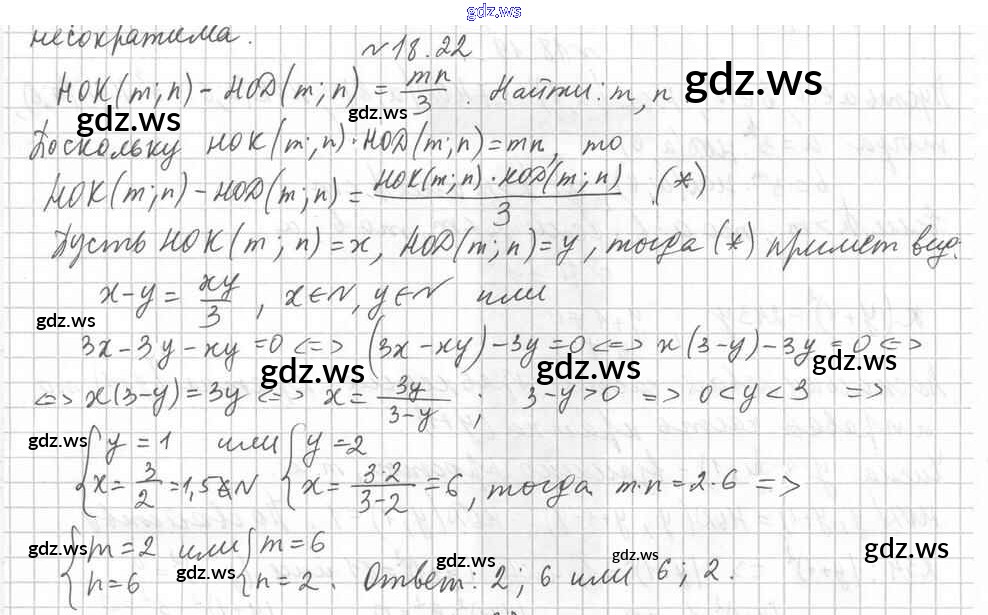 gdz.ws
несократима.
№18.22
НОК(m;n) - НОД(m;n) = mn/3. Найти: m, n gdz.ws
gdz.ws gdz.ws
Поскольку НОК(m;n)·НОД(m;n)=mn, то
НОК(m;n) - НОД(m;n) = НОК(m;n)·НОД(m;n)/3 (*)
Пусть НОК(m;n)=x, НОД(m;n)=y, тогда (*) примет вид:
x-y = xy/3, x∈N, y∈N или
gdz.ws
3x-3y-xy=0 <=> (3x-xy)-3y=0 <=> x(3-y)-3y=0 <=>
gdz.ws gdz.ws gdz.ws
<=> x(3-y)=3y <=> x = 3y/(3-y); 3-y>0 => 0<y<3 =>
gdz.ws { y=1 или { y=2
{ x = 3/2 = 1,5∉N { x = 3·2/(3-2) = 6, тогда m·n=2·6 =>
gdz.ws { m=2 или { m=6 gdz.ws gdz.ws
{ n=6 gdz.ws { n=2. Ответ: 2; 6 или 6; 2.